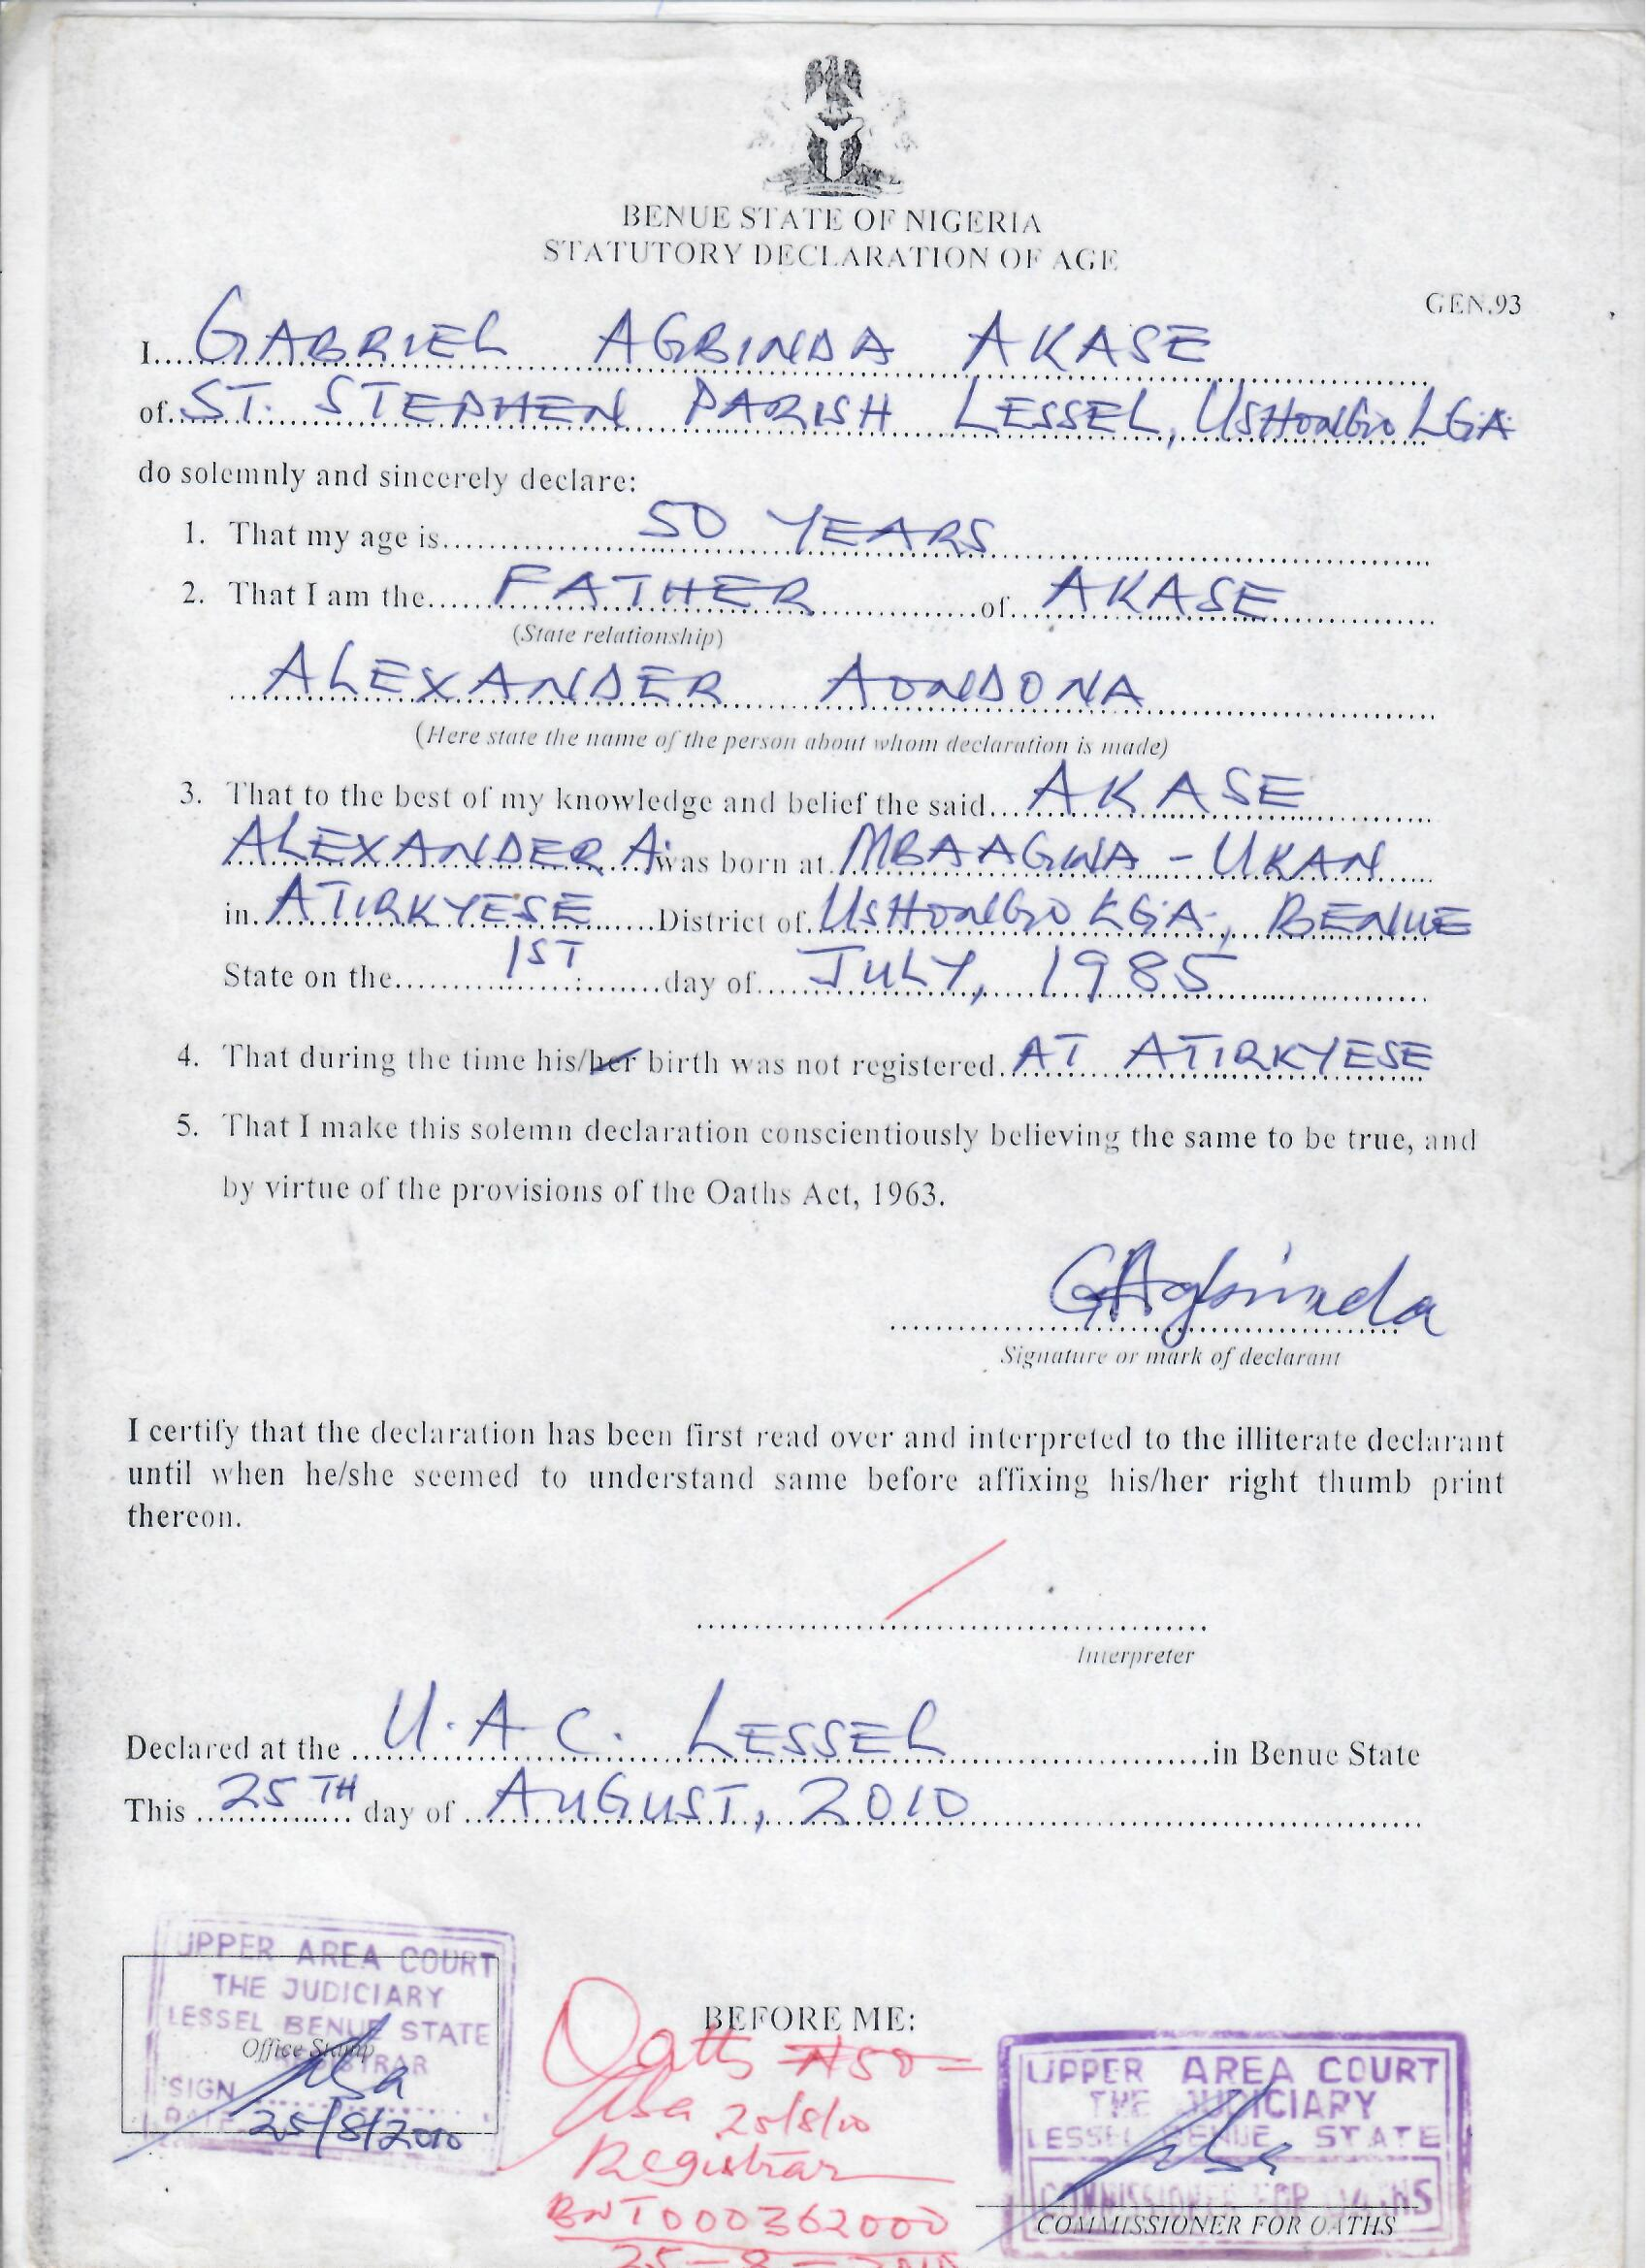 BENUE STATE OF NIGERIA
STATUTORY DECLARATION OF AGE
GEN.93
I.... GABRIEL AGBINDA AKASE
of. ST. STEPHEN PARISH LESSEL, USHONGO LGA
do solemnly and sincerely declare:
1. That my age is 50 YEARS
2. That I am the FATHER of AKASE
(State relationship)
ALEXANDER AONDONA
(Here state the name of the person about whom declaration is made)
3. That to the best of my knowledge and belief the said AKASE
ALEXANDER A. was born at MBAAGWA - UKAN
in ATIRKYESE District of USHONGO LGA, BENUE
State on the 1ST day of JULY, 1985
4. That during the time his/her birth was not registered AT ATIRKYESE
5. That I make this solemn declaration conscientiously believing the same to be true, and
by virtue of the provisions of the Oaths Act, 1963.
GAgbinda
Signature or mark of declarant
I certify that the declaration has been first read over and interpreted to the illiterate declarant
until when he/she seemed to understand same before affixing his/her right thumb print
thereon.
Interpreter
Declared at the U.A.C. LESSEL in Benue State
This 25TH day of AUGUST, 2010
UPPER AREA COURT
THE JUDICIARY
LESSEL BENUE STATE
Office Stamp
REGISTRAR
SIGN
DATE 25/8/2010
BEFORE ME:
Oaths ₦50=
25/8/10
Registrar
BNT000362000
25-8-2010
UPPER AREA COURT
THE JUDICIARY
LESSEL BENUE STATE
COMMISSIONER FOR OATHS
COMMISSIONER FOR OATHS